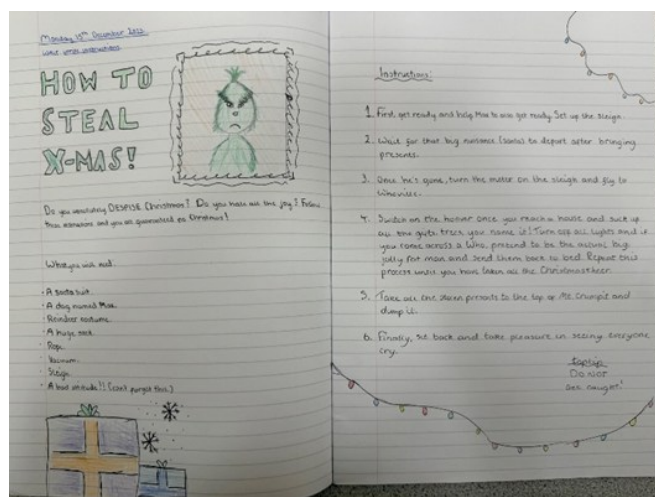 Monday 15th December 2025
HOW TO
STEAL
X-MAS!
Do you absolutely DESPISE Christmas? Do you hate all the joy? Follow
these instructions and you are guaranteed no Christmas!
What you will need:
· A santa suit.
· A dog named Max.
· Reindeer costume.
· A huge sack.
· Rope.
· Vacuum.
· Sleigh.
· A bad attitude!! (can't forget this)
Instructions:
1. First, get ready and help Max to also get ready. Set up the sleigh.
2. Wait for that big nuisance (santa) to depart after bringing
presents.
3. Once he's gone, turn the motor on the sleigh and fly to
Whoville.
4. Switch on the hoover once you reach a house and suck up
all the gifts, trees, you name it! Turn off all lights and if
you come across a Who, pretend to be the actual big
jolly fat man and send them back to bed. Repeat this
process until you have taken all the Christmas cheer.
5. Take all the stolen presents to the top of Mt. Crumpit and
dump it.
6. Finally, sit back and take pleasure in seeing everyone
cry.
top tip
DO NOT
get caught!